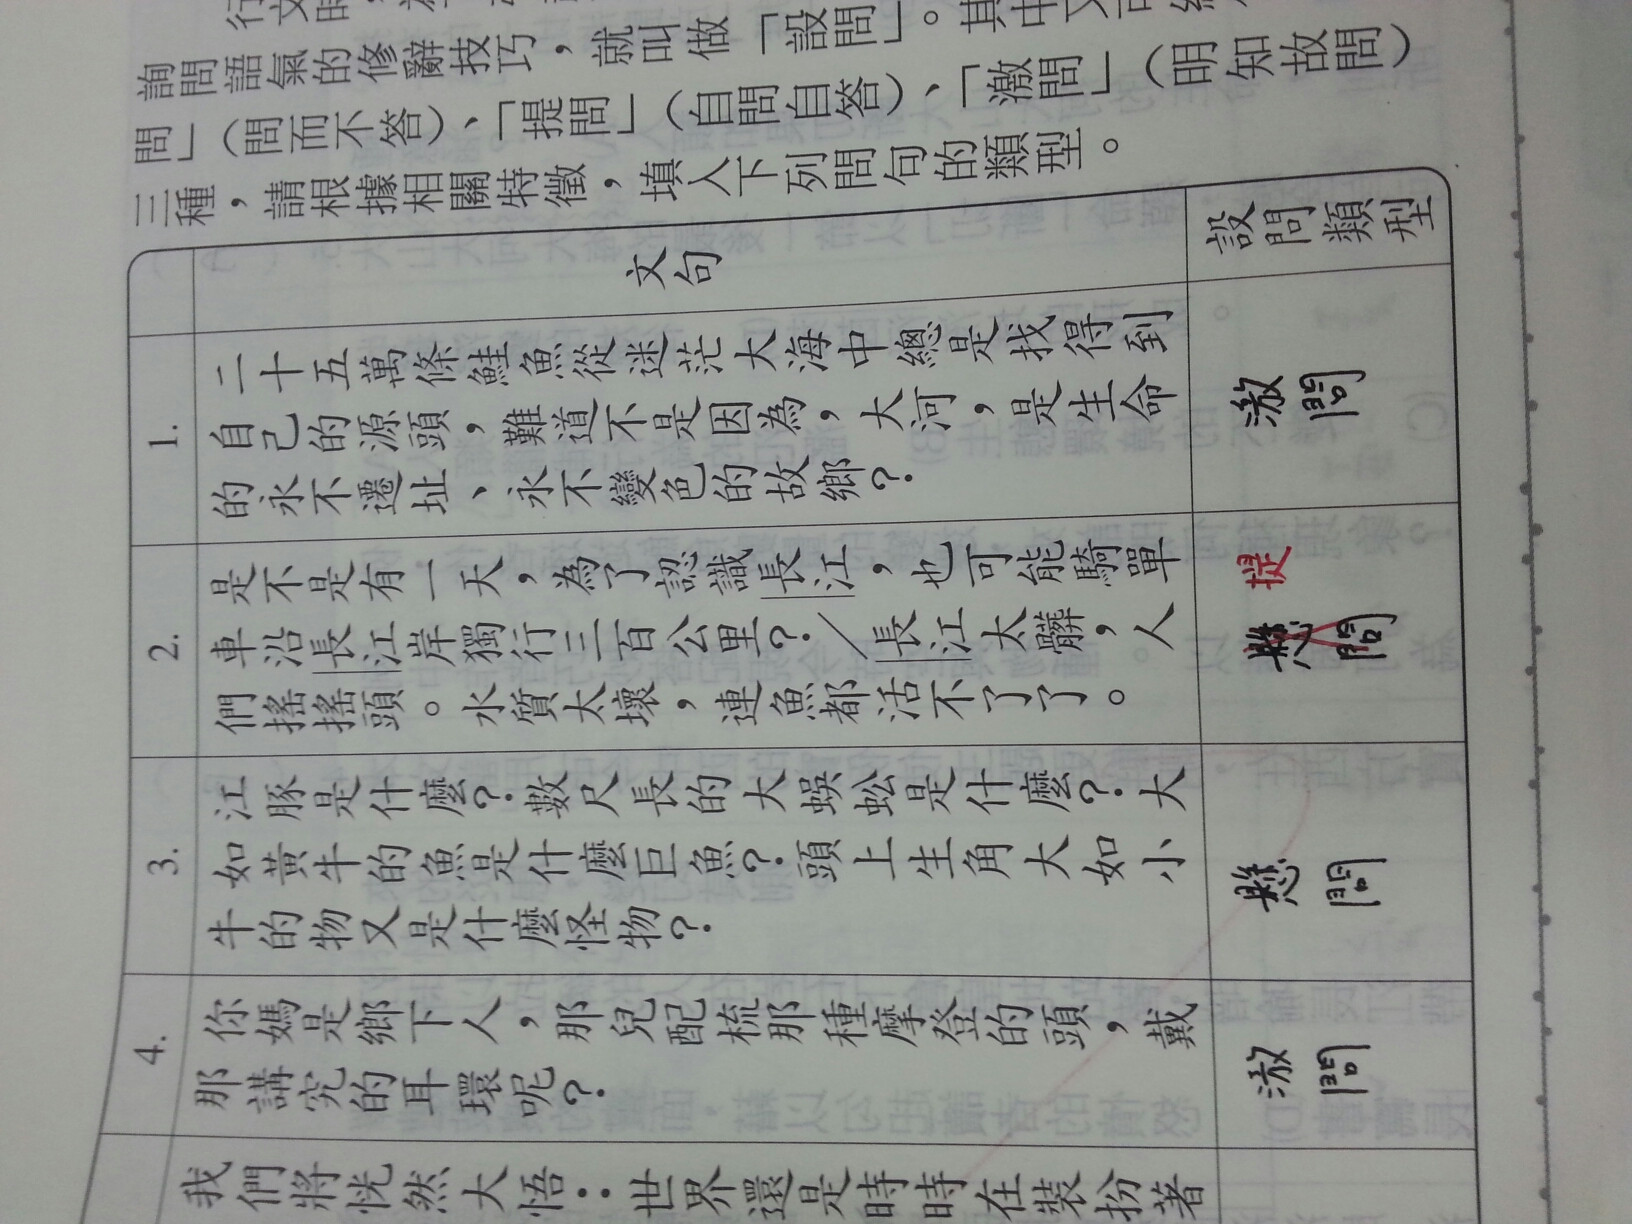 詢問語氣的修辭技巧，就叫做「設問」。其中又可
問」（問而不答）、「提問」（自問自答）、「激問」（明知故問）
三種，請根據相關特徵，填入下列問句的類型。
文句
設問類型
1.
二十五萬條鮭魚從迷茫大海中總是找得到
自己的源頭，難道不是因為，大河，是生命
的永不遷址、永不變色的故鄉？
激問
2.
是不是有一天，為了認識長江，也可能騎單
車沿長江岸獨行三百公里？╱長江太髒，人
們搖搖頭。水質太壞，連魚都活不了了。
提
懸問
3.
江豚是什麼？數尺長的大蜈蚣是什麼？大
如黃牛的魚是什麼巨魚？頭上生角大如小
牛的物又是什麼怪物？
懸問
4.
你媽是鄉下人，那兒配梳那種摩登的頭，戴
那講究的耳環呢？
激問
我們將恍然大悟：世界還是時時在裝扮著